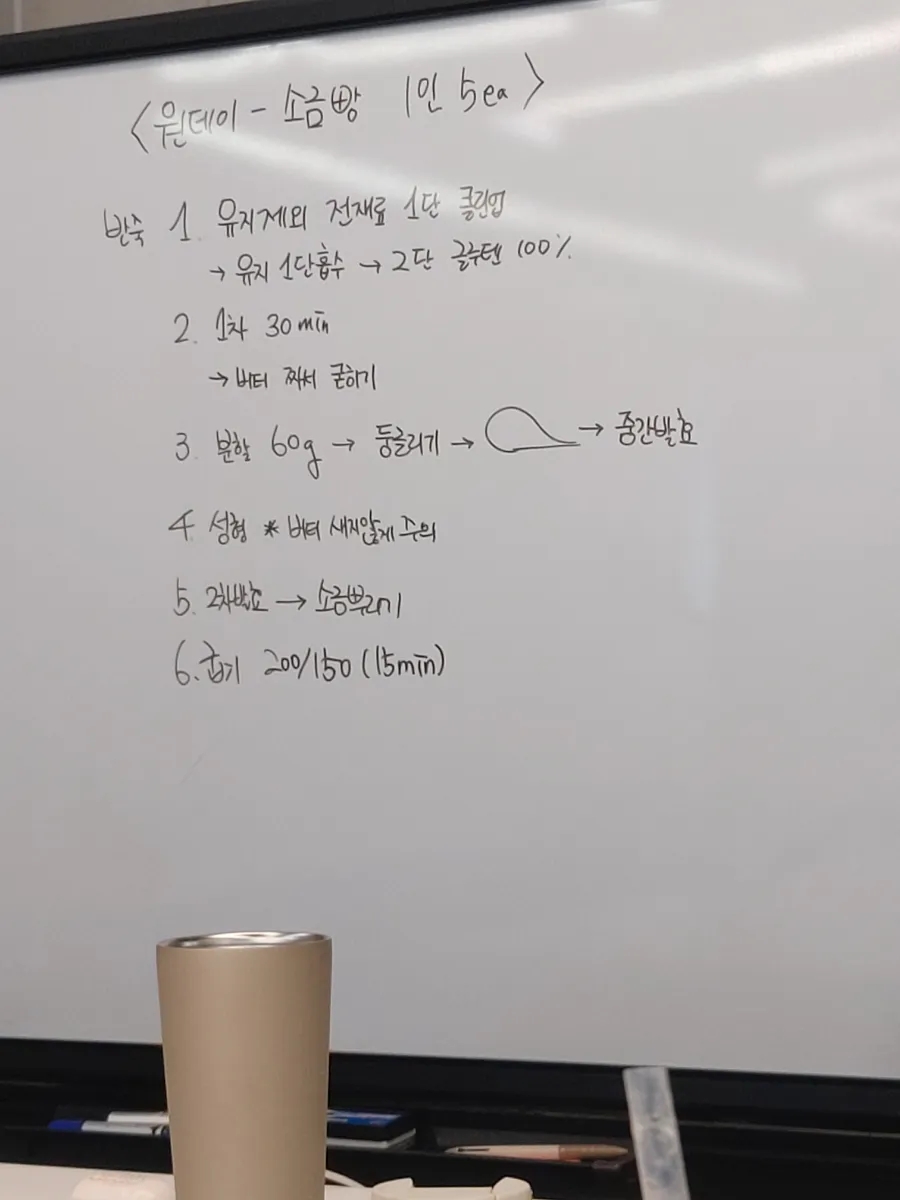 <원데이 - 소금빵 1인 5ea>
반죽 1. 유지제외 전재료 1단 클린업
→ 유지 1단흡수 → 2단 글루텐 100%
2. 1차 30min
→ 버터 짜서 굳히기
3. 분할 60g → 둥글리기 → → 중간발효
4 성형 * 버터 새지않게 주의
5. 2차발효 → 소금뿌리기
6. 굽기 200/150 (15min)